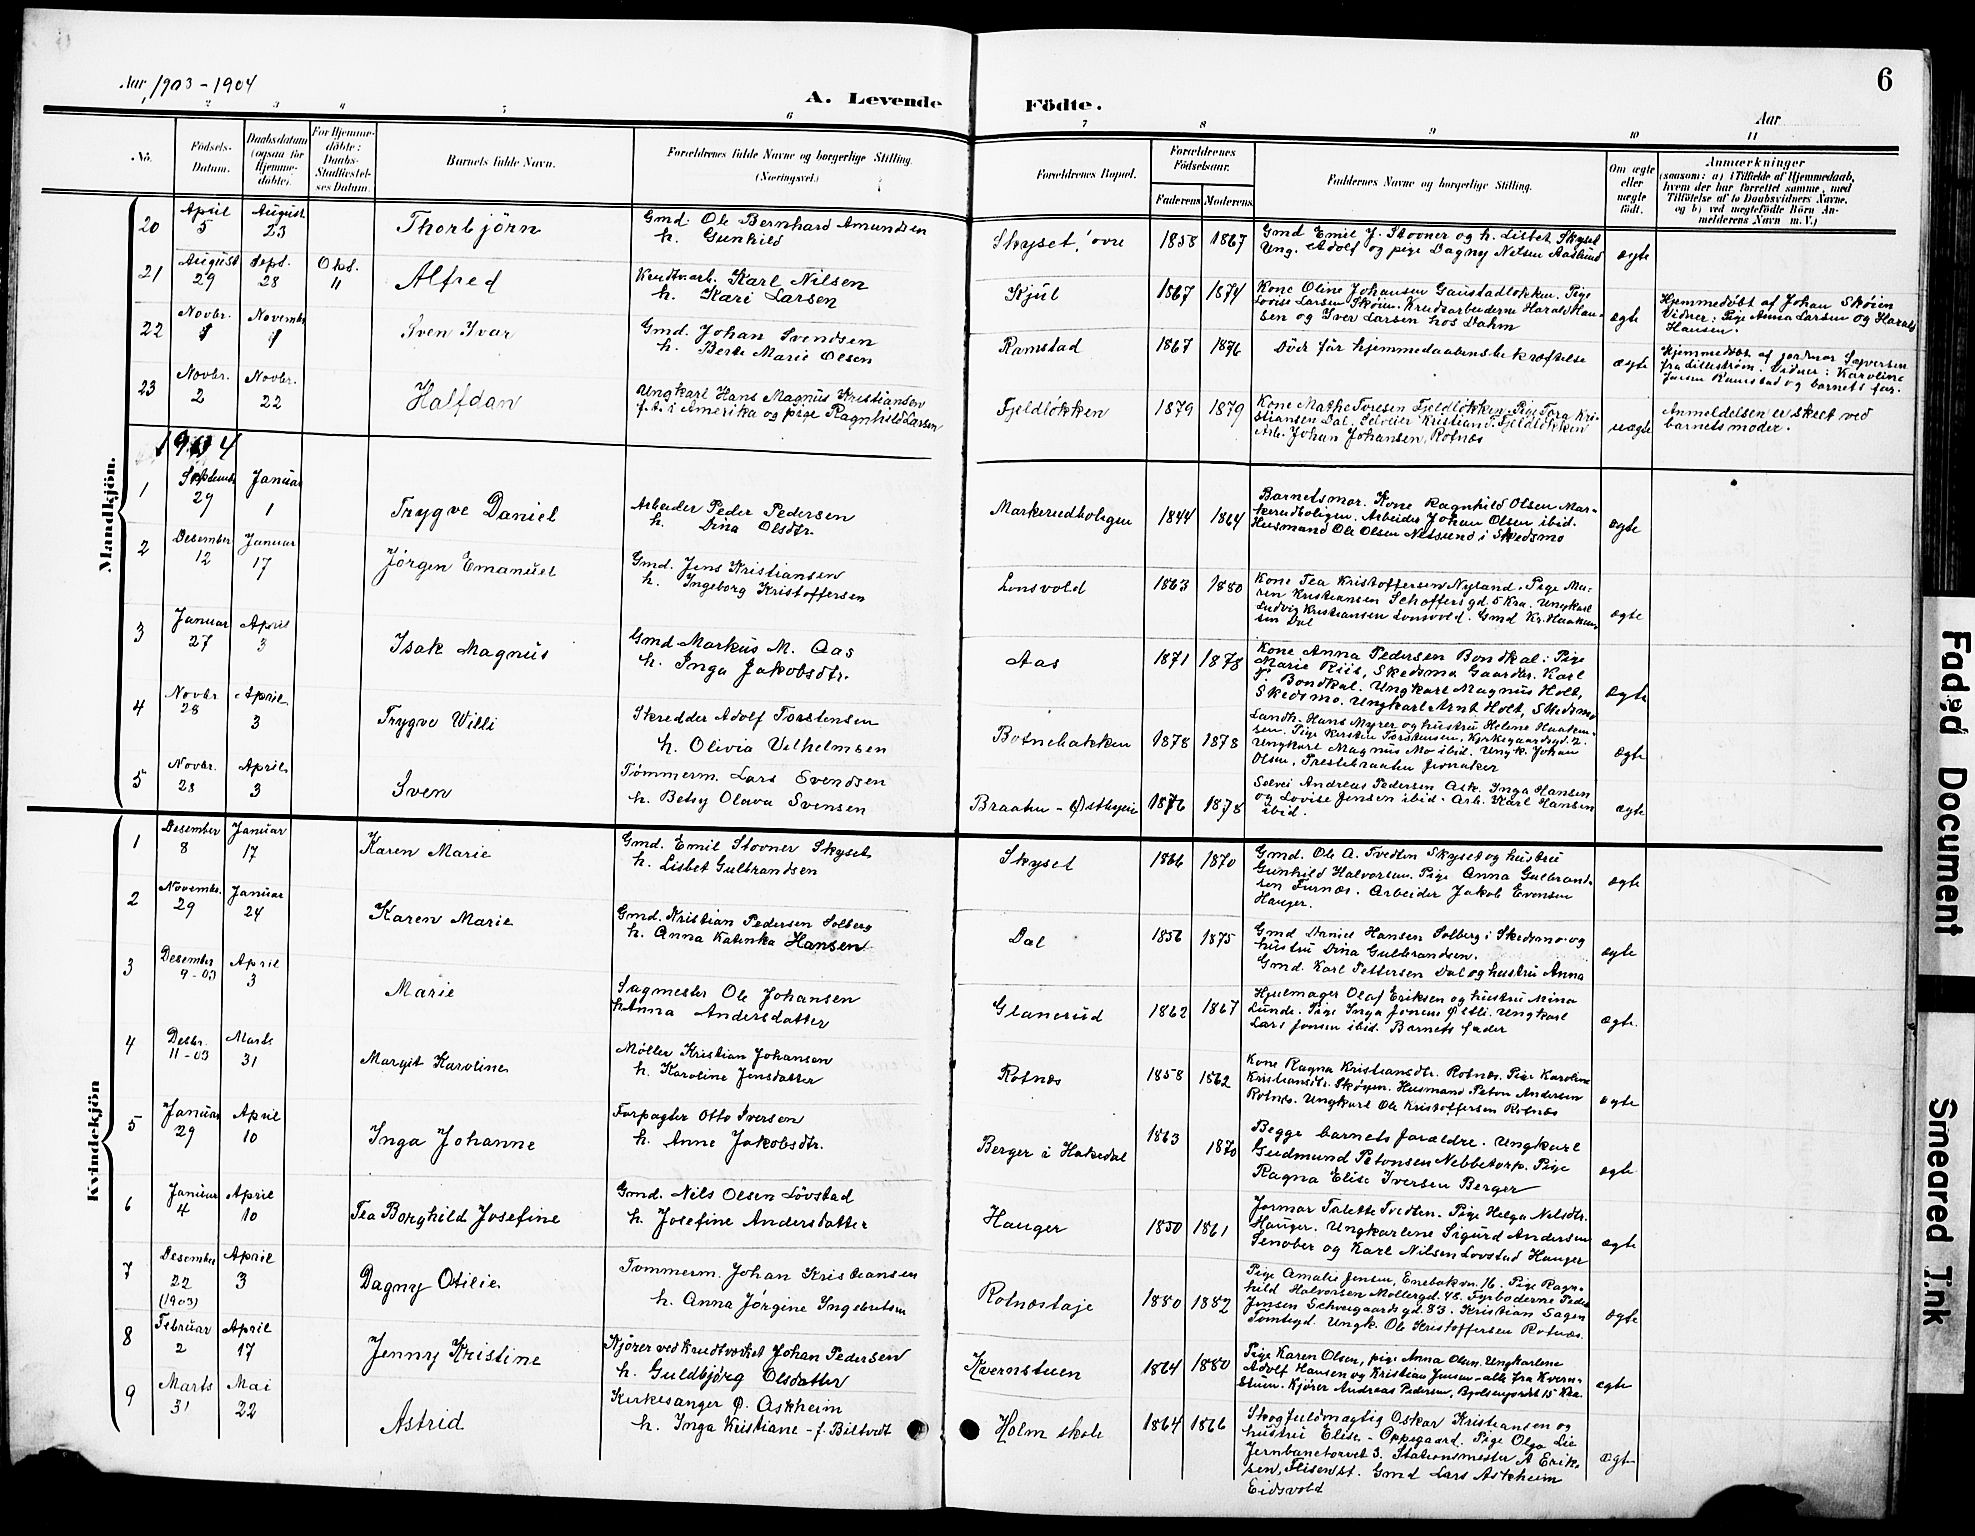 Aar, 1903-1904
A. Levende Födte.
6
Aar
2 3 4 5 6 7 8 9 10 11
No.
Födsels-Datum.
Daabsdatum (ogsaa for Hjemme-döbte).
For Hjemme-döbte: Daabs-Stadfæstel-ses Datum.
Barnets fulde Navn.
Forældrenes fulde Navne og borgerlige Stilling. (Næringsvei.)
Forældrenes Bopæl.
Forældrenes Födselsaar.
Faderens Moderens
Faddernes Navne og borgerlige Stilling.
Om ægte eller uægte födt.
Anmærkninger
(saasom: a) i Tilfælde af Hjemmedaab,
hvem der har forrettet samme, med
Tilföielse af to Daabsvidners Navne,
og b) ved uægtefödte Börn An-
melderens Navn m. V.)
Mandkjön.
20 April 5 August 23 Thorbjörn
Gmd. Ole Bernhard Amundsen
h. Gunhild
Skyset, øvre 1858 1867
Gmd Emil J. Stovner og h. Lisbet Skyset
Ung. Adolf og pige Dagny Nelsen Aaslund
ægte
21 August 29 Sept. 28 Okt. 11 Alfred
Krudtv.arb. Karl Nilsen
h. Kari Larsen
Kjul 1867 1874
Kone Oline Johansen Gaustadløkken. Pige
Lovise Larsen Skøien. Krudtarbeiderne Harald Han-
sen og Iver Larsen hos Dahm
ægte
Hjemmedøbt af Johan Skøien
Vidner: Pige Anna Larsen og Harald
Hansen.
22 Novbr. November Sven Ivar
Gmd. Johan Svendsen
h. Berte Marie Olsen
Ramstad 1867 1876
Död før hjemmedaabens bekræftelse
ægte
Hjemmedøbt af jordmor Syversen
fra Lillestrøm. Vidner: Karoline
Jensen Ramstad og barnets far.
23 Novbr. 2 Novbr. 22 Halfdan
Ungkarl Hans Magnus Kristiansen
f. A. i Amerika og pige Ragnhild Larsen
Fjeldløkken 1879 1879
Kone Mathe Toresen Fjeldløkken. Pige Tora Kri-
stiansen Dal. Selveier Kristian Fjeldløkken
Arb. Johan Johansen, Rotnæs
uægte
Anmeldelsen er skeet ved
barnets moder.
1904
1 Septembr 29 Januar 1 Trygve Daniel
Arbeider Peder Pedersen
h. Dina Olsdtr.
Markerudboligen 1844 1864
Barnets mor. Kone Ragnhild Olsen Mar-
kerudboligen. Arbeider Johan Olsen ibid.
Husmand Ole Olsen Nitsund i Skedsmo
ægte
2 Desember 12 Januar 17 Jørgen Emanuel
Gmd. Jens Kristiansen
h. Ingeborg Kristoffersen
Lonsvold 1863 1880
Kone Tea Kristoffersen Nyland. Pige Ma-
ren Kristiansen Schoffersgd. 5 Kra. Ungkarl
Ludvig Kristiansen Lonsvold. Gmd Kr. Haaken-
sen Dal
ægte
3 Januar 27 April 3 Isak Magnus
Gmd Markus M. Aas
h. Inga Jakobsdtr.
Aas 1871 1878
Kone Anna Pedersen Bondkal: Pige
Marie Riis, Skedsmo Gaarder. Karl
P. Bondkal. Ungkarl Magnus Holt,
Skedsmo. Ungkarl Arnt Holt, Skedsmo
ægte
4 Novbr. 28 April 3 Trygve Willi
Skredder Adolf Torstensen
h. Olivia Vilhelmsen
Botnebakken 1878 1878
Landh. Hans Myrer og hustru Helene Haaken-
sen. Pige Kirsten Torstensen, Kirkegaardsgd. 2.
Ungkarl Magnus Mo ibid. Ungk. Johan
Olsen, Prestebraaten Jevnaker
ægte
5 Novbr. 28 April 3 Sven
Tømmerm. Lars Svendsen
h. Betsy Olava Svensen
Braaten - Østbyeie 1876 1878
Selvei Andreas Pedersen Ask. Inga Hansen
og Lovise Jensen ibid. Arb. Karl Hansen
ibid.
ægte
Kvindekjön
1 Desember 8 Januar 17 Karen Marie
Gmd. Emil Stovner Skyset
h. Lisbet Gulbrandsen
Skyset 1866 1870
Gmd. Ole A. Tvedten Skyset og hustru
Gunhild Halvorsen. Pige Anna Gulbrand-
sen Furnæs. Arbeider Jakob Evensen
Hauger.
ægte
2 November 29 Januar 24 Karen Marie
Gmd. Kristian Pedersen Solberg
h. Anna Katinka Hansen
Dal 1856 1875
Gmd Daniel Hansen Solberg i Skedsmo og
hustru Dina Gulbrandsen.
Gmd. Karl Pettersen Dal og hustru Anna
ægte
3 Desember 9-03 April 3 Marie
Sagmester Ole Johansen
h. Anna Andersdatter
Glanerud 1862 1867
Hjulmager Olaf Eriksen og hustru Mina
Lunde. Pige Inga Jonsen Østli. Ungkarl
Lars Jonsen ibid. Barnets fader
ægte.
4 Desbr. 11-03 Marts 31 Margit Karoline
Møller Kristian Johansen
h. Karoline Jensdatter
Rotnæs 1858 1862
Kone Ragna Kristiansdtr. Rotnæs. Pige Karoline
Kristiansdtr. Skøyen. Husmand Peton Andersen
Rotnæs. Ungkarl Ole Kristoffersen Rotnæs
ægte
5 Januar 29 April 10 Inga Johanne
Forpagter Otto Iversen
h. Anne Jakobsdtr.
Berger i Hakedal 1863 1870
Begge barnets forældre. Ungkarl
Gudmund Petonsen Nebbetorp. Pige
Ragna Elise Iversen Berger
ægte
6 Januar 4 April 10 Tea Borghild Josefine
Gmd. Nils Olsen Løvstad
h. Josefine Andersdatter
Hauger 1850 1861
Jormor Talette Tvedten. Pige Helga Nilsdtr.
Hauger. Ungkarlene Sigurd Andersen
Senober og Karl Nilsen Lovstad Hauger
ægte
7 Desember 22 (1903) April 3 Dagny Otilie
Tømmerm. Johan Kristiansen
h. Anna Jørgine Ingebretsen
Rotnæstaje 1880 1882
Pige Amalie Jensen, Enebakvn. 16. Pige Ragn-
hild Halvorsen Møllergd. 48. Fyrbøderne Peder
Jensen Schweigaardsgd. 83. Kristian Sagen
Tomtegd. Ungk. Ole Kristoffersen Rotnæs.
ægte
8 Februar 2 April 17 Jenny Kristine
Kjører ved krudtverket Johan Pedersen
h. Guldbjørg Olsdatter
Kvernstuen 1864 1880
Pige Karen Olsen, pige Anna Olsen. Ungkarlene
Adolf Hansen og Kristian Jensen - alle fra Kvern-
stuen. Kjører Andreas Pedersen, 15 Kra.
ægte
9 Marts 31 Mai 22 Astrid
Kirkesanger Ø. Askheim
h. Inga Kristiane - f. Biltvedt
Holm skole 1864 1866
Skogfuldmægtig Oskar Kristiansen og
hustru Elise - Oppegaard. Pige Olga Lie
Jernbanetorvet 3. Stationsmester A Erik-
sen, Flisen st. Gmd Lars Askheim
Eidsvold
ægte
Faded Document
Smeared Ink